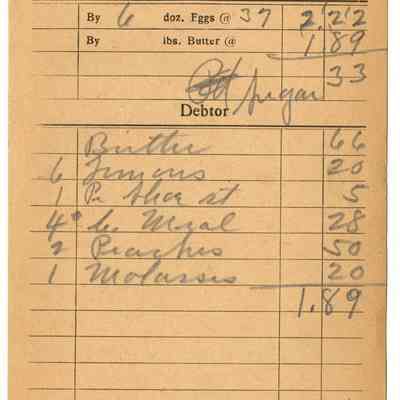 By 6 doz. Eggs @ 37 2.22
By lbs. Butter @ 1.89
33
sugar
Debtor
Butter 66
6 Lemons 20
1 Pr shoe st 5
4 Meal 28
2 Peaches 50
1 Molasses 20
1.89